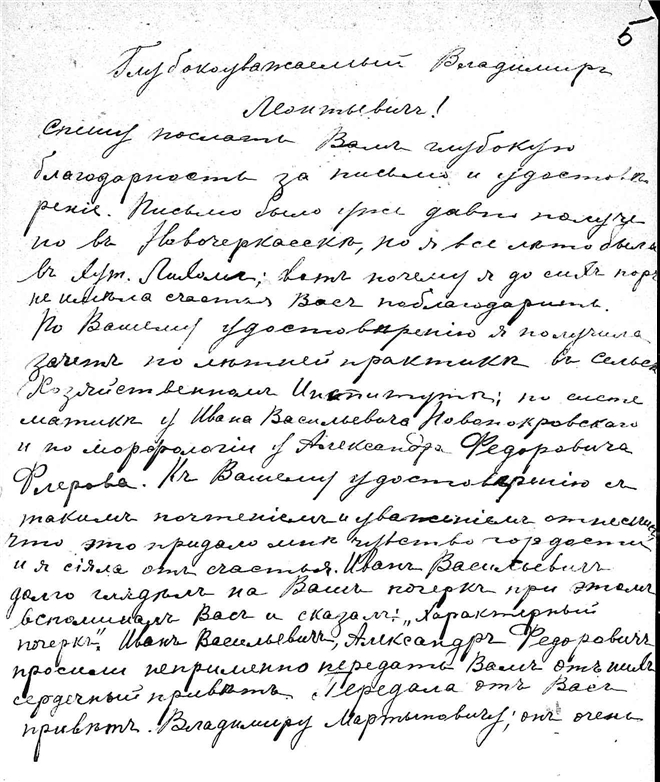 5
Глубокоуважаемый Владимиръ
Леонтьевичъ!
Спѣшу послать Вамъ глубокую
благодарность за письмо и удостовѣ
реніе. Письмо было уже давно получе
но въ Новочеркасскѣ, но я все лѣто была
въ хут. ; вотъ почему я до сихъ поръ
не имѣла счастья Васъ поблагодарить.
По Вашему удостовѣренію я получила
зачетъ по лѣтней практикѣ въ Сельско
Хозяйственномъ Институтѣ; по систе
матикѣ у Ивана Васильевича Новопокровскаго
и по морфологіи у Александра Федоровича
Флерова. Къ Вашему удостовѣренію съ
такимъ почтеніемъ и уваженіемъ отнеслись,
что это придало мнѣ чувство гордости
и я сіяла отъ счастья. Иванъ Васильевичъ
долго глядѣлъ на Вашъ почеркъ при этомъ
вспоминалъ Васъ и сказалъ: „Характерный
почеркъ". Иванъ Васильевичъ, Александръ Федоровичъ
просили неприменно передать Вамъ отъ нихъ
сердечный привѣтъ. Передала отъ Васъ
привѣтъ Владимиру Мартыновичу; онъ очень